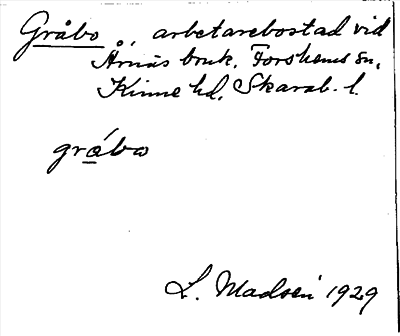 Gråbo, arbetarebostad vid
Årnäs bruk, Forshems sn,
Kinne hd, Skarab. l.
gråbo
L. Madsén 1929